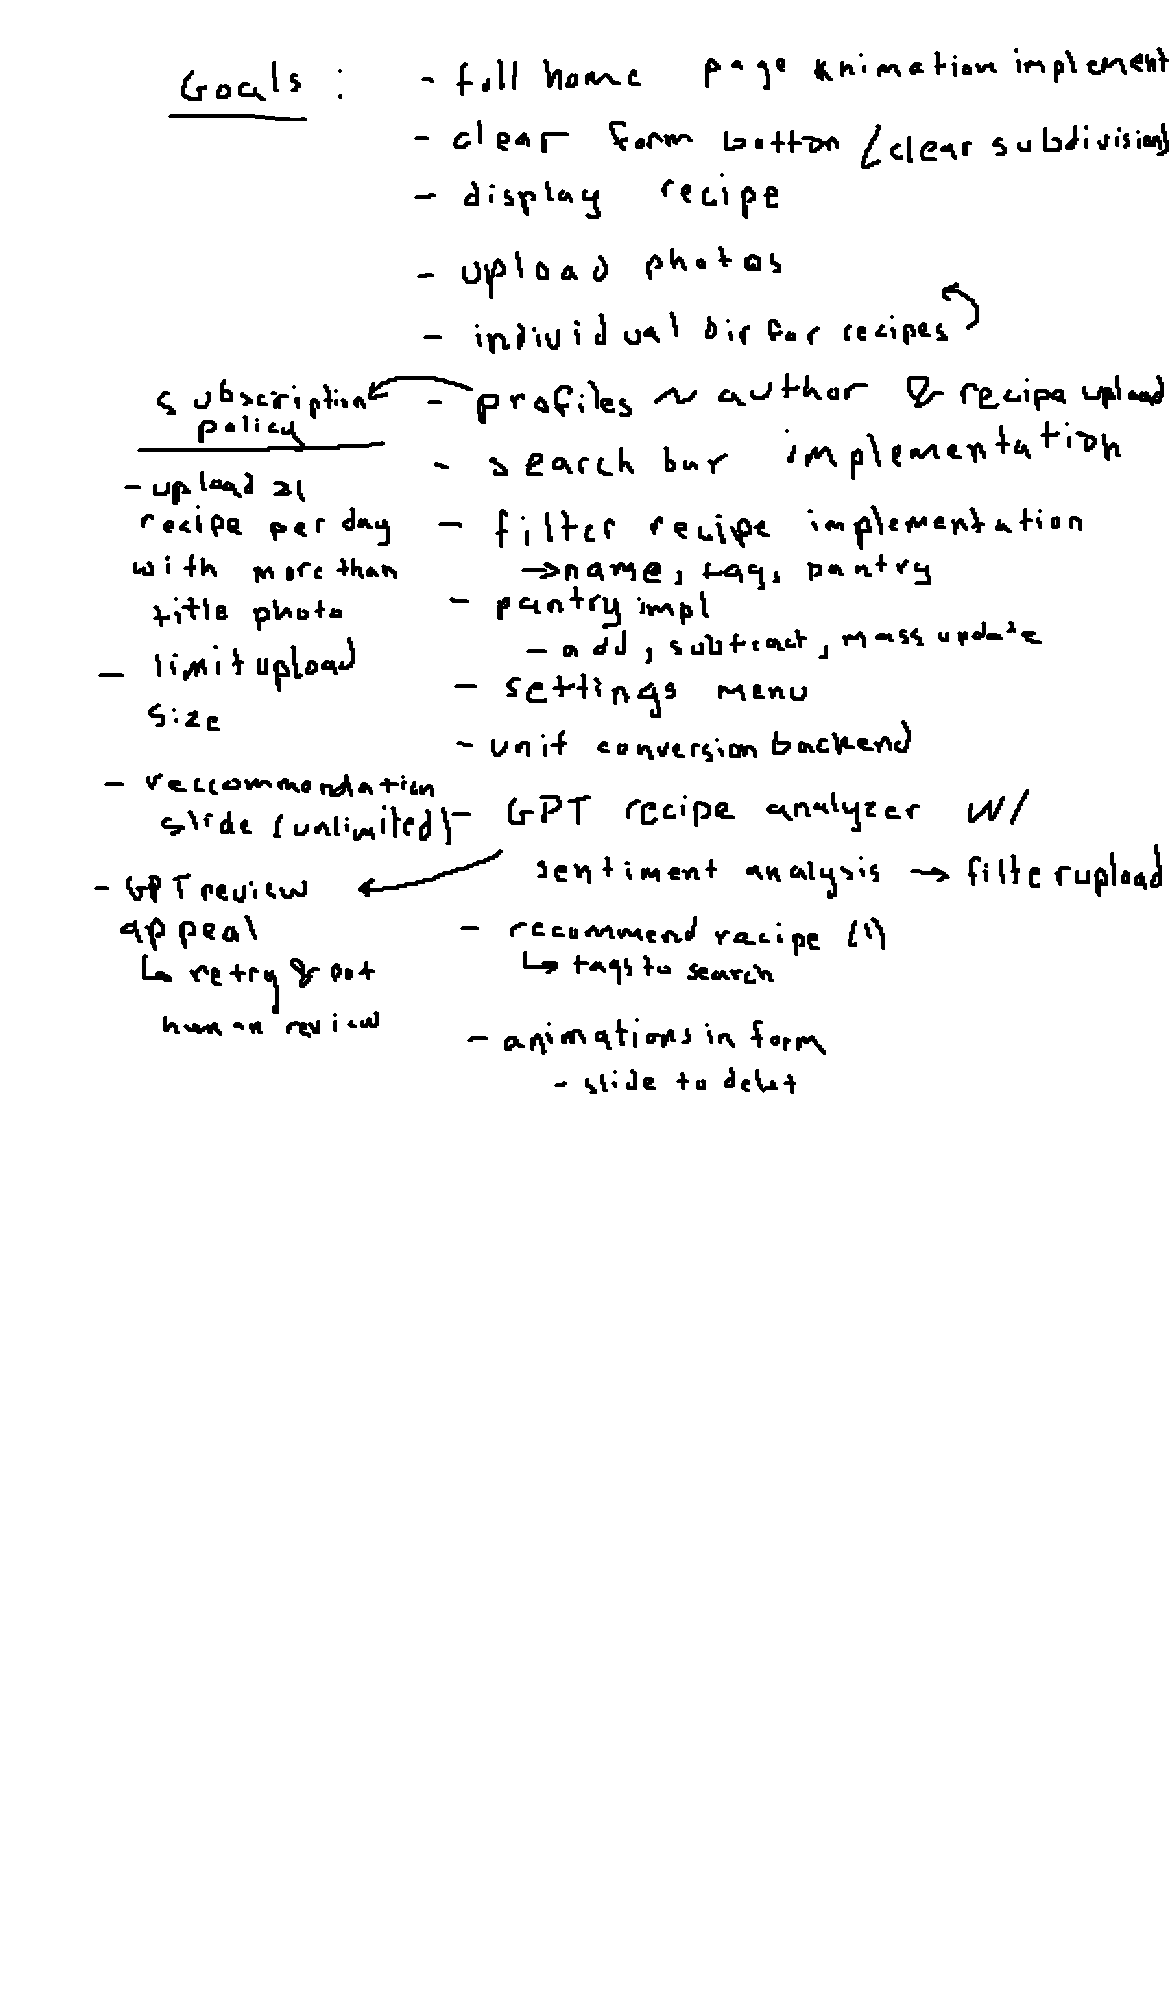 Goals :
- full home page animation implement
- clear form button (clear subdivisions)
- display recipe
- upload photos
- individual dir for recipes
- profiles ~ author & recipe upload
- search bar implementation
- filter recipe implementation
→ name, tag, pantry
- pantry impl
- add, subtract, mass update
- settings menu
- unit conversion backend
- GPT recipe analyzer w/
sentiment analysis → filter upload
- recommend recipe (1)
↳ tags to search
- animations in form
- slide to delet
subscription
policy
- upload ≥1
recipe per day
with more than
title photo
- limit upload
size
- reccommendation
slide (unlimited)
- GPT review
appeal
↳ retry & opt
human review